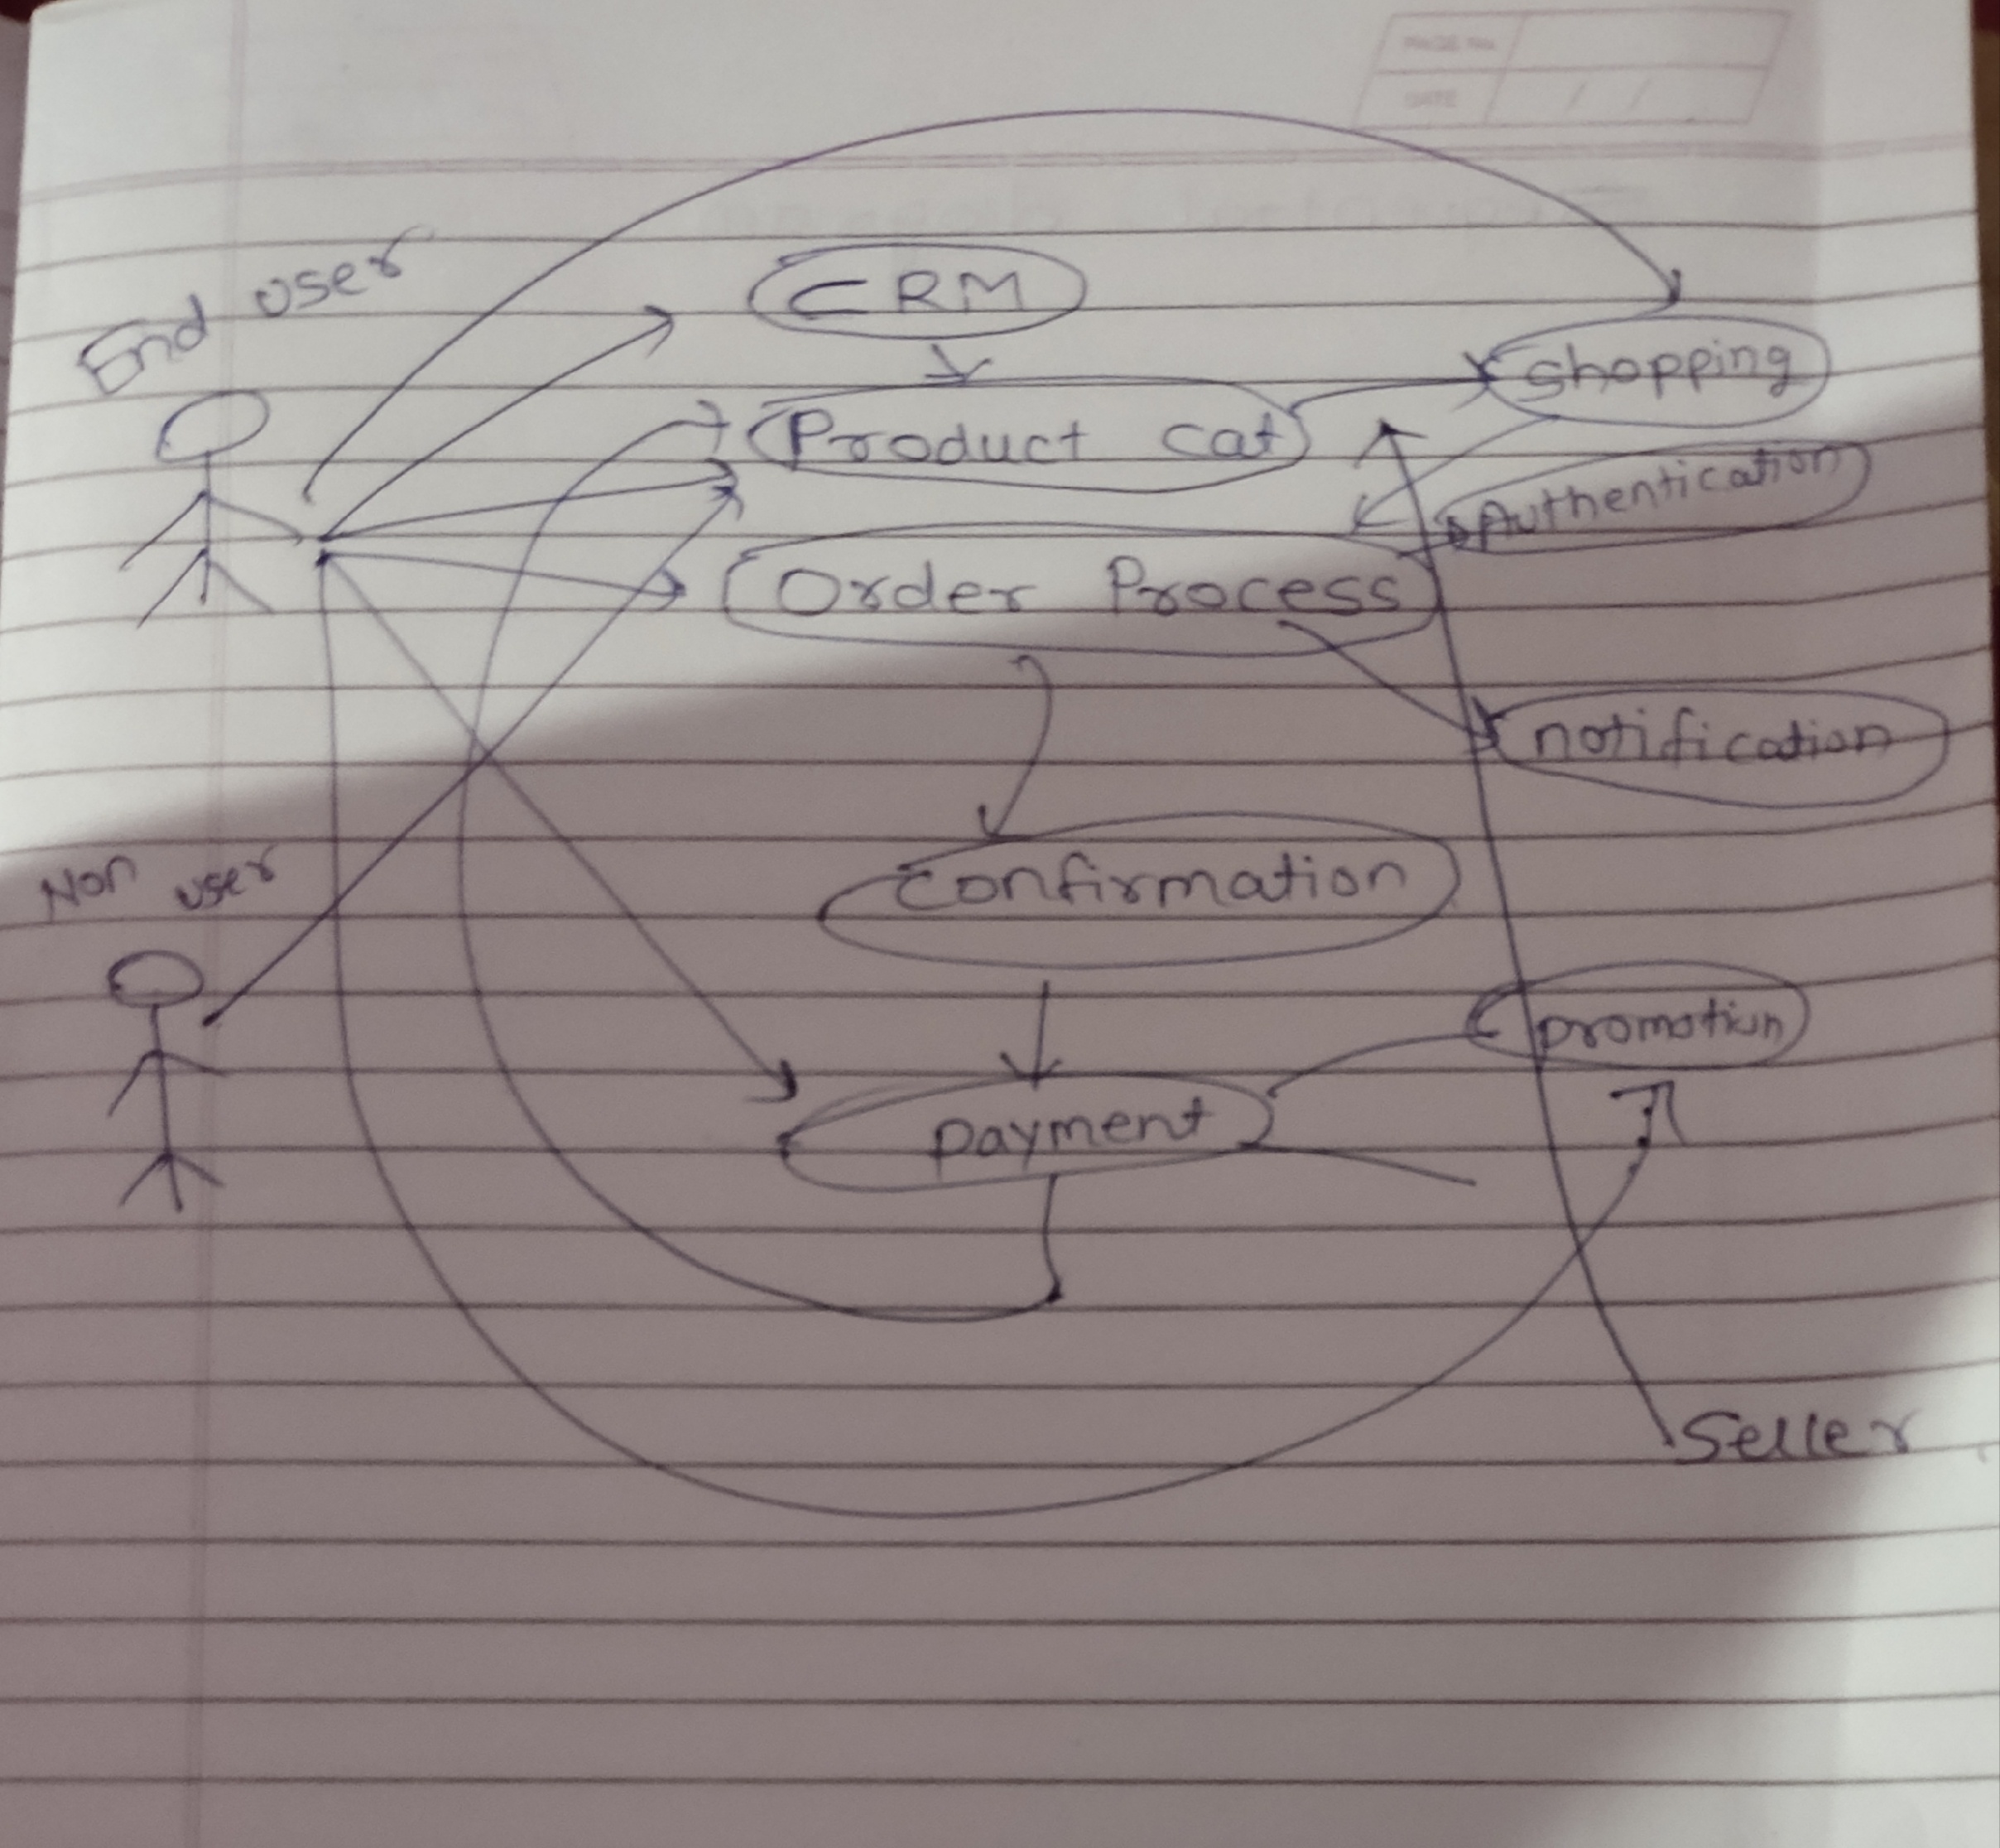 PAGE No.
DATE / /
End user
CRM
shopping
Product cat
Authentication
Order Process
notification
Non user
confirmation
promotion
payment
Seller